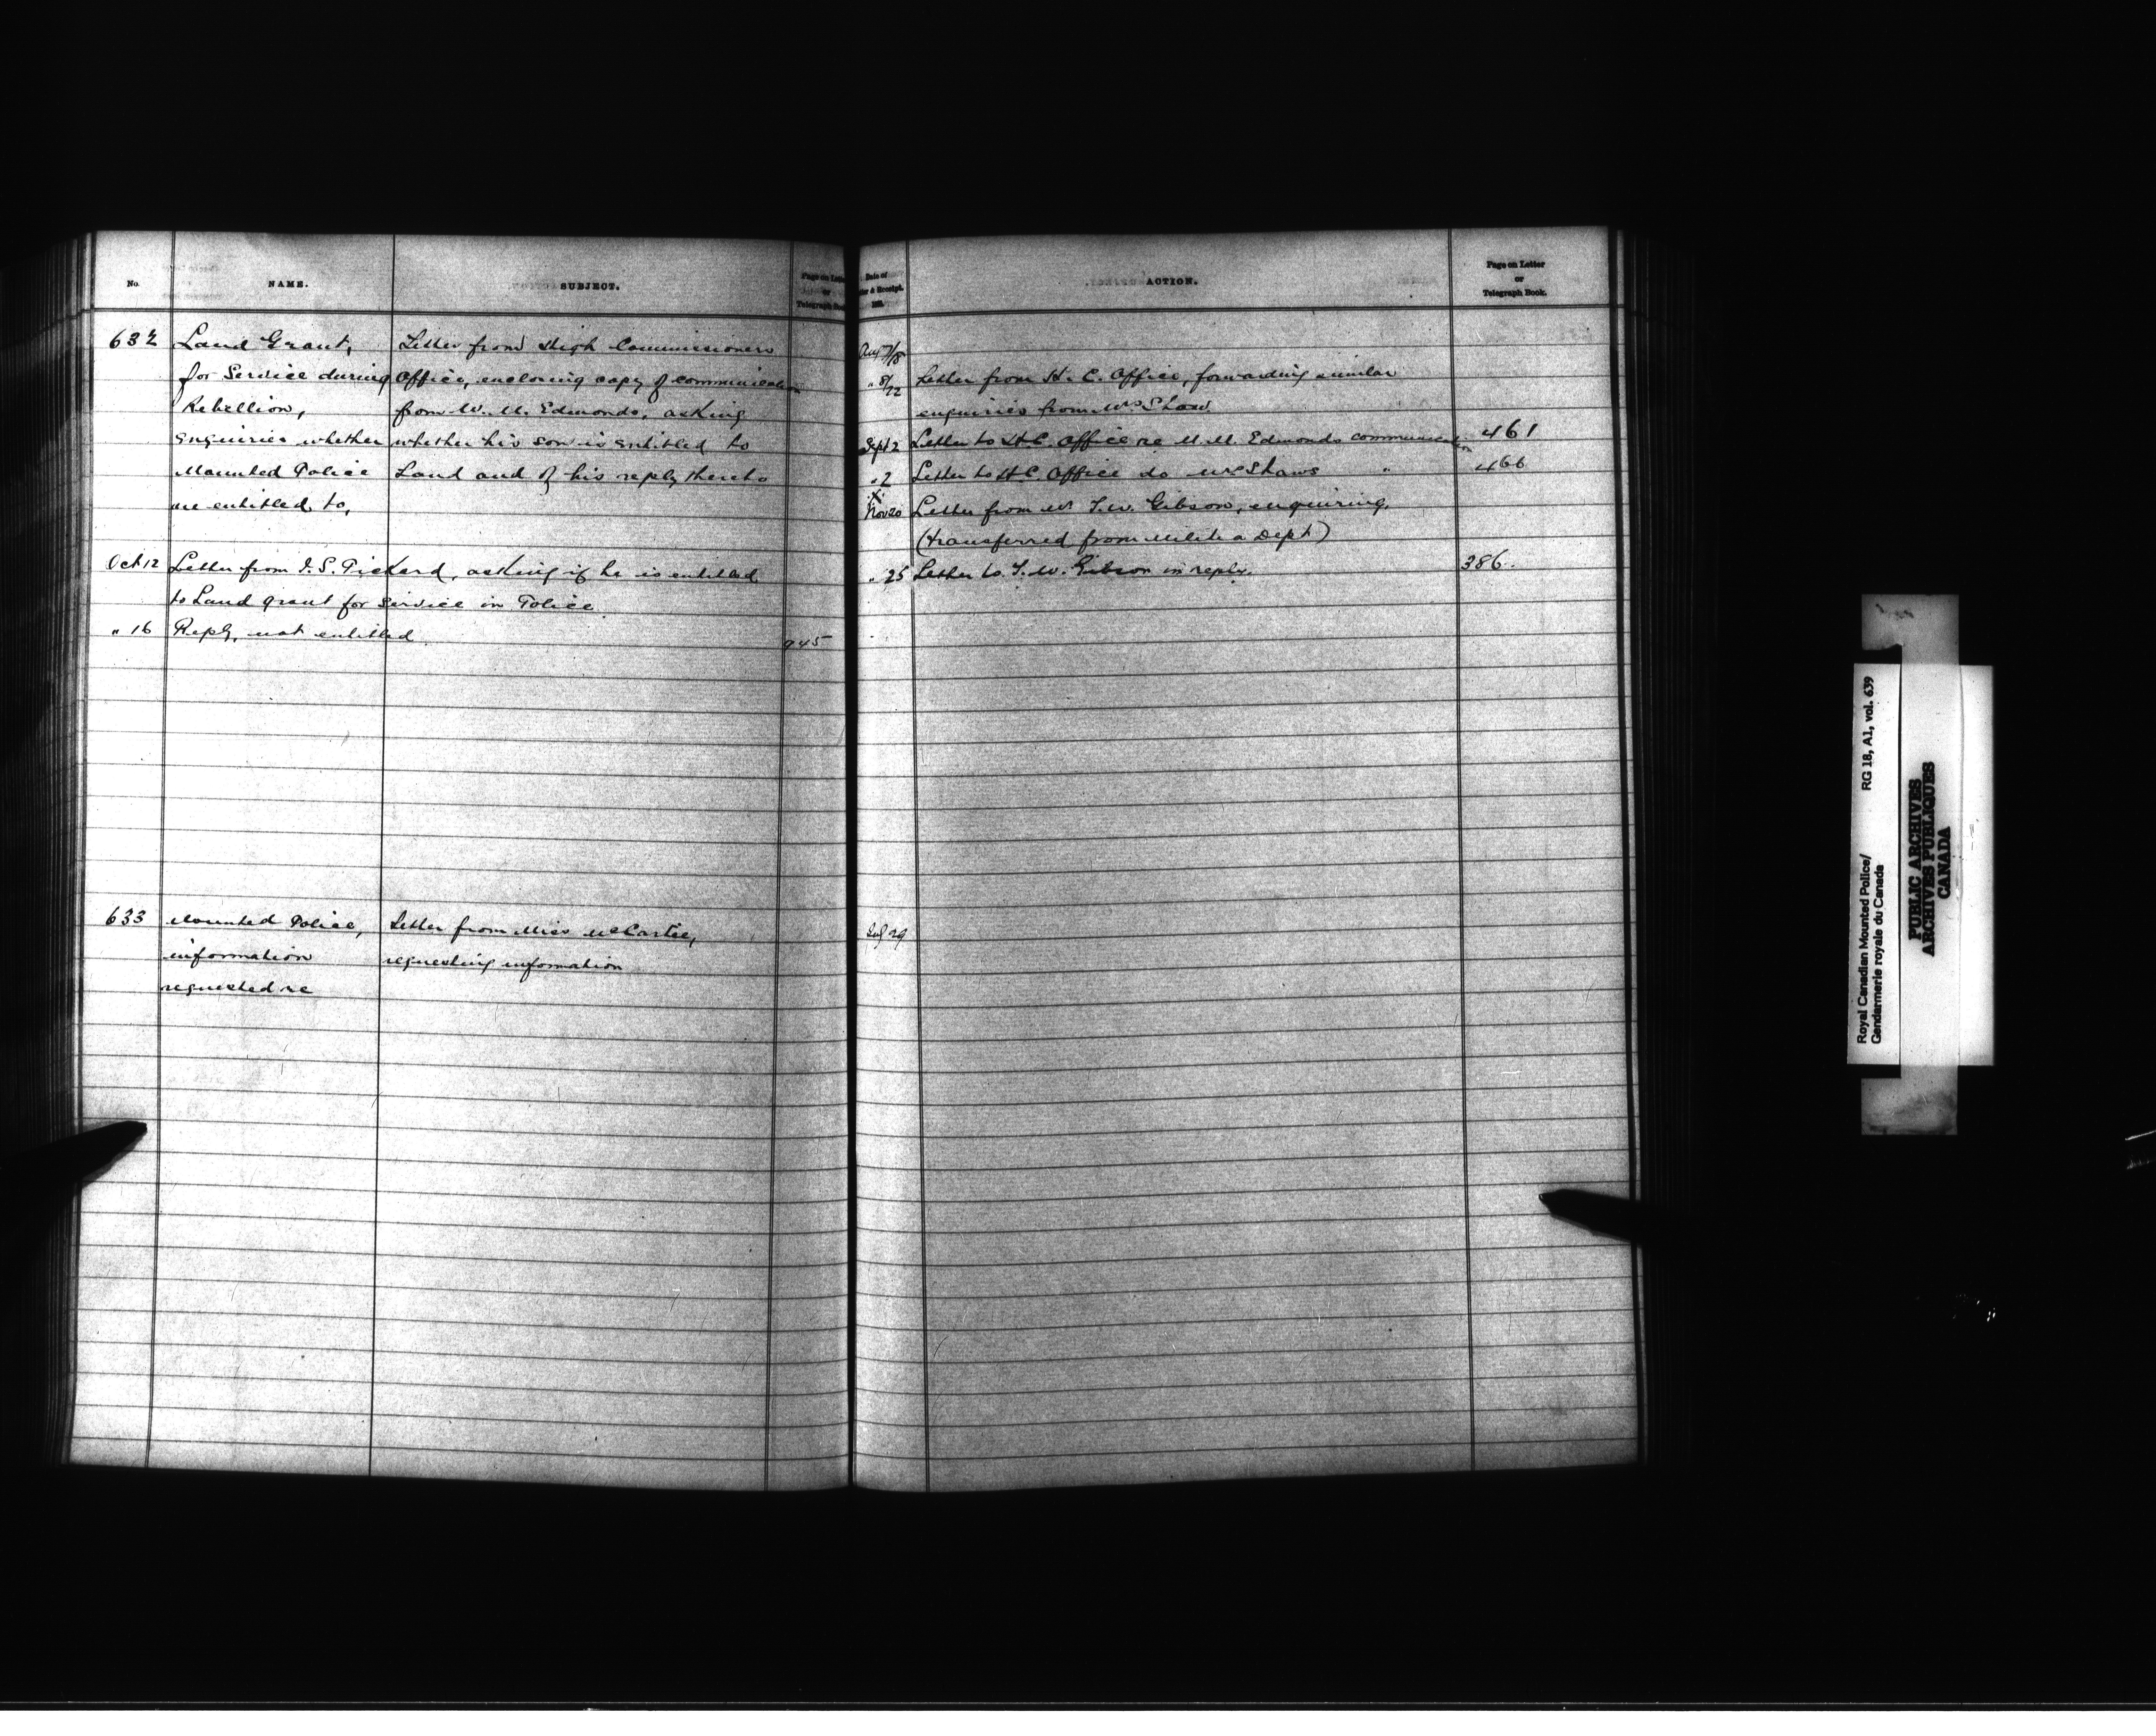 No.
NAME.
SUBJECT.
Page on Letter
or
Telegraph Book.
632
Land Grant,
for Service during
Rebellion,
enquiries whether
Mounted Police
are entitled to,
Letter from High Commissioners
Office, enclosing copy of communication
from W. M. Edmonds, asking
whether his son is entitled to
Land and of his reply thereto
Oct 12 Letter from J. S. Pickard, asking if he is entitled
to Land grant for service in Police
" 16 Reply, not entitled 945
633
Mounted Police,
information
requested re
Letter from Miss McCartee,
requesting information
Date of
& Receipt.
ACTION.
Page on Letter
or
Telegraph Book.
Aug 7/18
" 8/22 Letter from H. C. Office, forwarding similar
enquiries from Mrs Shaw
Sept 2 Letter to H.C. Office re M. M. Edmonds communication 461
" 2 Letter to H.C. Office do Mrs Shaws " 466
Nov 20 Letter from Mr T. W. Gibson, enquiring,
(transferred from Militia Dept)
" 25 Letter to T. W. Gibson in reply. 386.
July 29
Royal Canadian Mounted Police/
Gendarmerie royale du Canada
RG 18, A1, vol. 639
PUBLIC ARCHIVES
ARCHIVES PUBLIQUES
CANADA